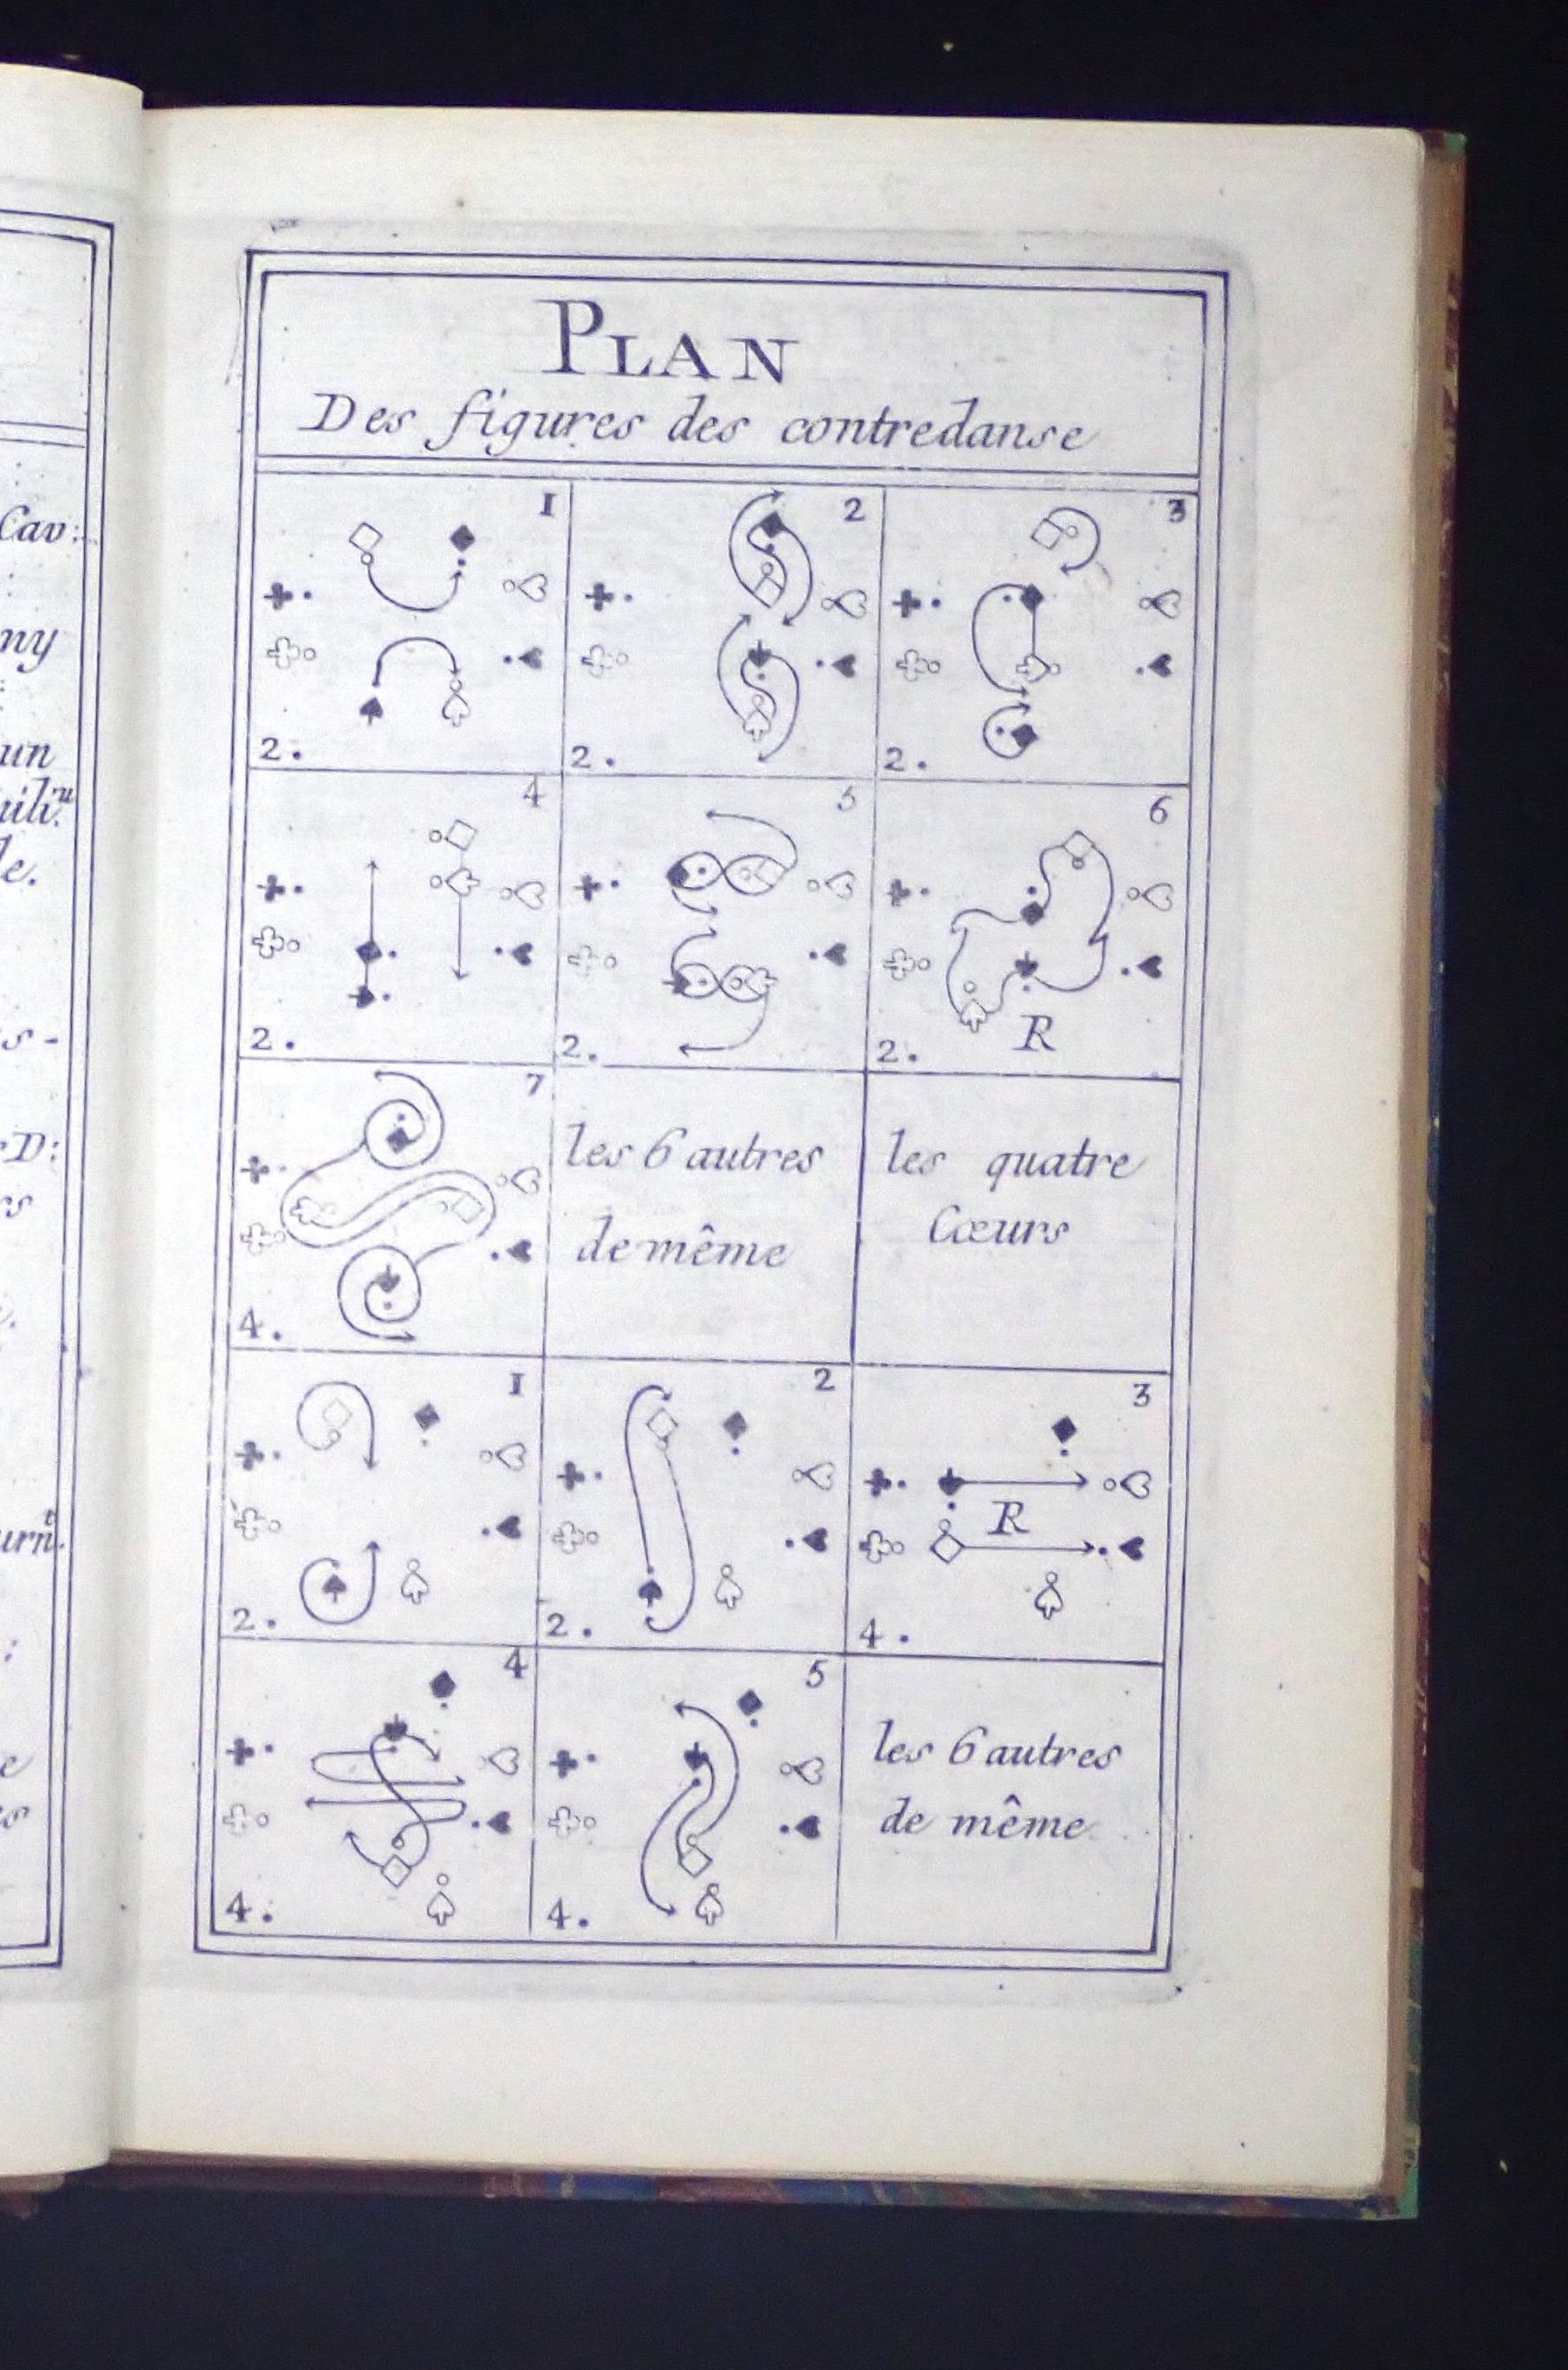 Cav:
ny
un
le.
rs
PLAN
Des figures des contredanse
1 2 3
2. 2. 2.
4 5 6
R
2. 2. 2.
7
les 6 autres
de même
les quatre
Cœurs
4.
1 2 3
R
2. 2. 4.
4 5
les 6 autres
de même
4. 4.